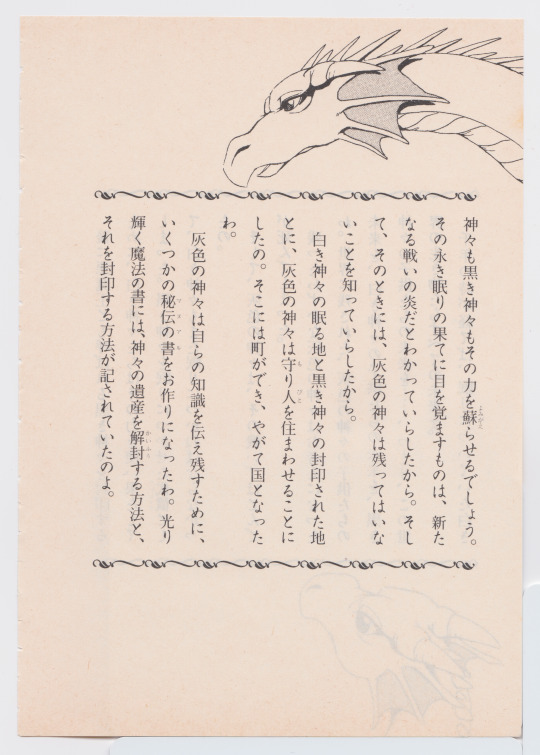 神々も黒き神々もその力を蘇らせるでしょう。
その永き眠りの果てに目を覚ますものは、新た
なる戦いの炎だとわかっていらしたから。そし
て、そのときには、灰色の神々は残ってはいな
いことを知っていらしたから。
白き神々の眠る地と黒き神々の封印された地
とに、灰色の神々は守り人を住まわせることに
したの。そこには町ができ、やがて国となった
わ。
灰色の神々は自らの知識を伝え残すために、
いくつかの秘伝の書をお作りになったわ。光り
輝く魔法の書には、神々の遺産を解封する方法と、
それを封印する方法が記されていたのよ。